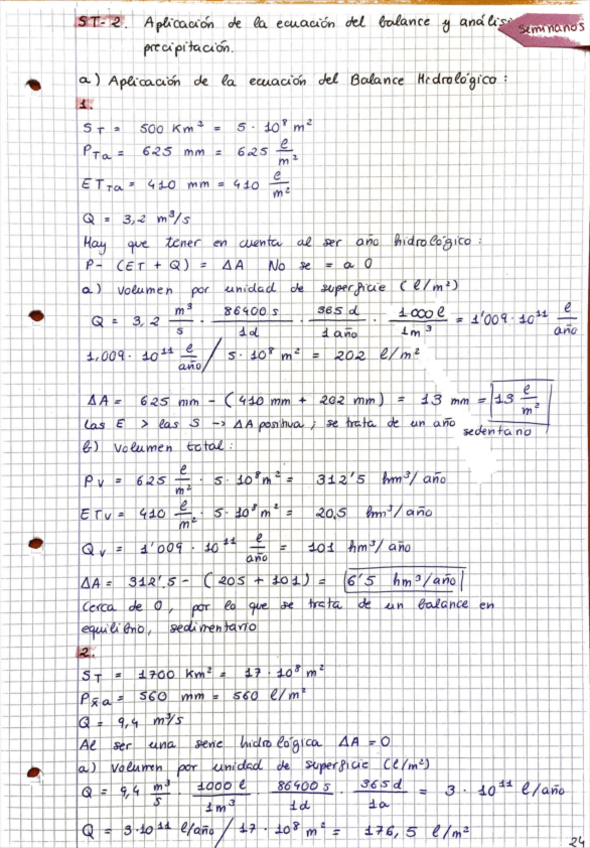 ST-2. Aplicación de la ecuación del balance y análisis
seminarios
precipitación.
a) Aplicación de la ecuación del Balance Hidrológico:
1.
S_T = 500 Km² = 5 · 10⁸ m²
P_Ta = 625 mm = 625 l/m²
ET_Ta = 410 mm = 410 l/m²
Q = 3,2 m³/s
Hay que tener en cuenta al ser año hidrológico:
P - (ET + Q) = ΔA No se = a 0
a) Volumen por unidad de superficie (l/m²)
Q = 3,2 m³/s · 86400 s/1d · 365 d/1 año · 1000 l/1m³ = 1'009 · 10¹¹ l/año
1,009 · 10¹¹ l/año / 5 · 10⁸ m² = 202 l/m²
ΔA = 625 mm - (410 mm + 202 mm) = 13 mm = 13 l/m²
Las E > las S → ΔA positiva; se trata de un año sedentario
b) Volumen total:
P_V = 625 l/m² · 5 · 10⁸ m² = 312'5 hm³/año
ET_V = 410 l/m² · 5 · 10⁸ m² = 20,5 hm³/año
Q_V = 1'009 · 10¹¹ l/año = 101 hm³/año
ΔA = 312'5 - (205 + 101) = 6'5 hm³/año
Cerca de 0, por lo que se trata de un balance en
equilibrio, sedimentario
2.
S_T = 1700 Km² = 17 · 10⁸ m²
P_x̄a = 560 mm = 560 l/m²
Q = 9,4 m³/s
Al ser una serie hidrológica ΔA = 0
a) Volumen por unidad de superficie (l/m²)
Q = 9,4 m³/s · 1000 l/1m³ · 86400 s/1d · 365 d/1a = 3 · 10¹¹ l/año
Q = 3·10¹¹ l/año / 17 · 10⁸ m² = 176,5 l/m²
24